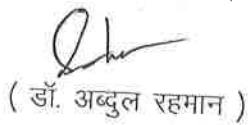 ( डॉ. अब्दुल रहमान )